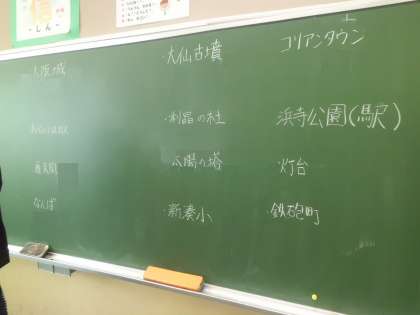 大阪城
通天閣
なんば
大仙古墳
・利晶の杜
太陽の塔
・新湊小
コリアンタウン
浜寺公園(駅)
・灯台
鉄砲町